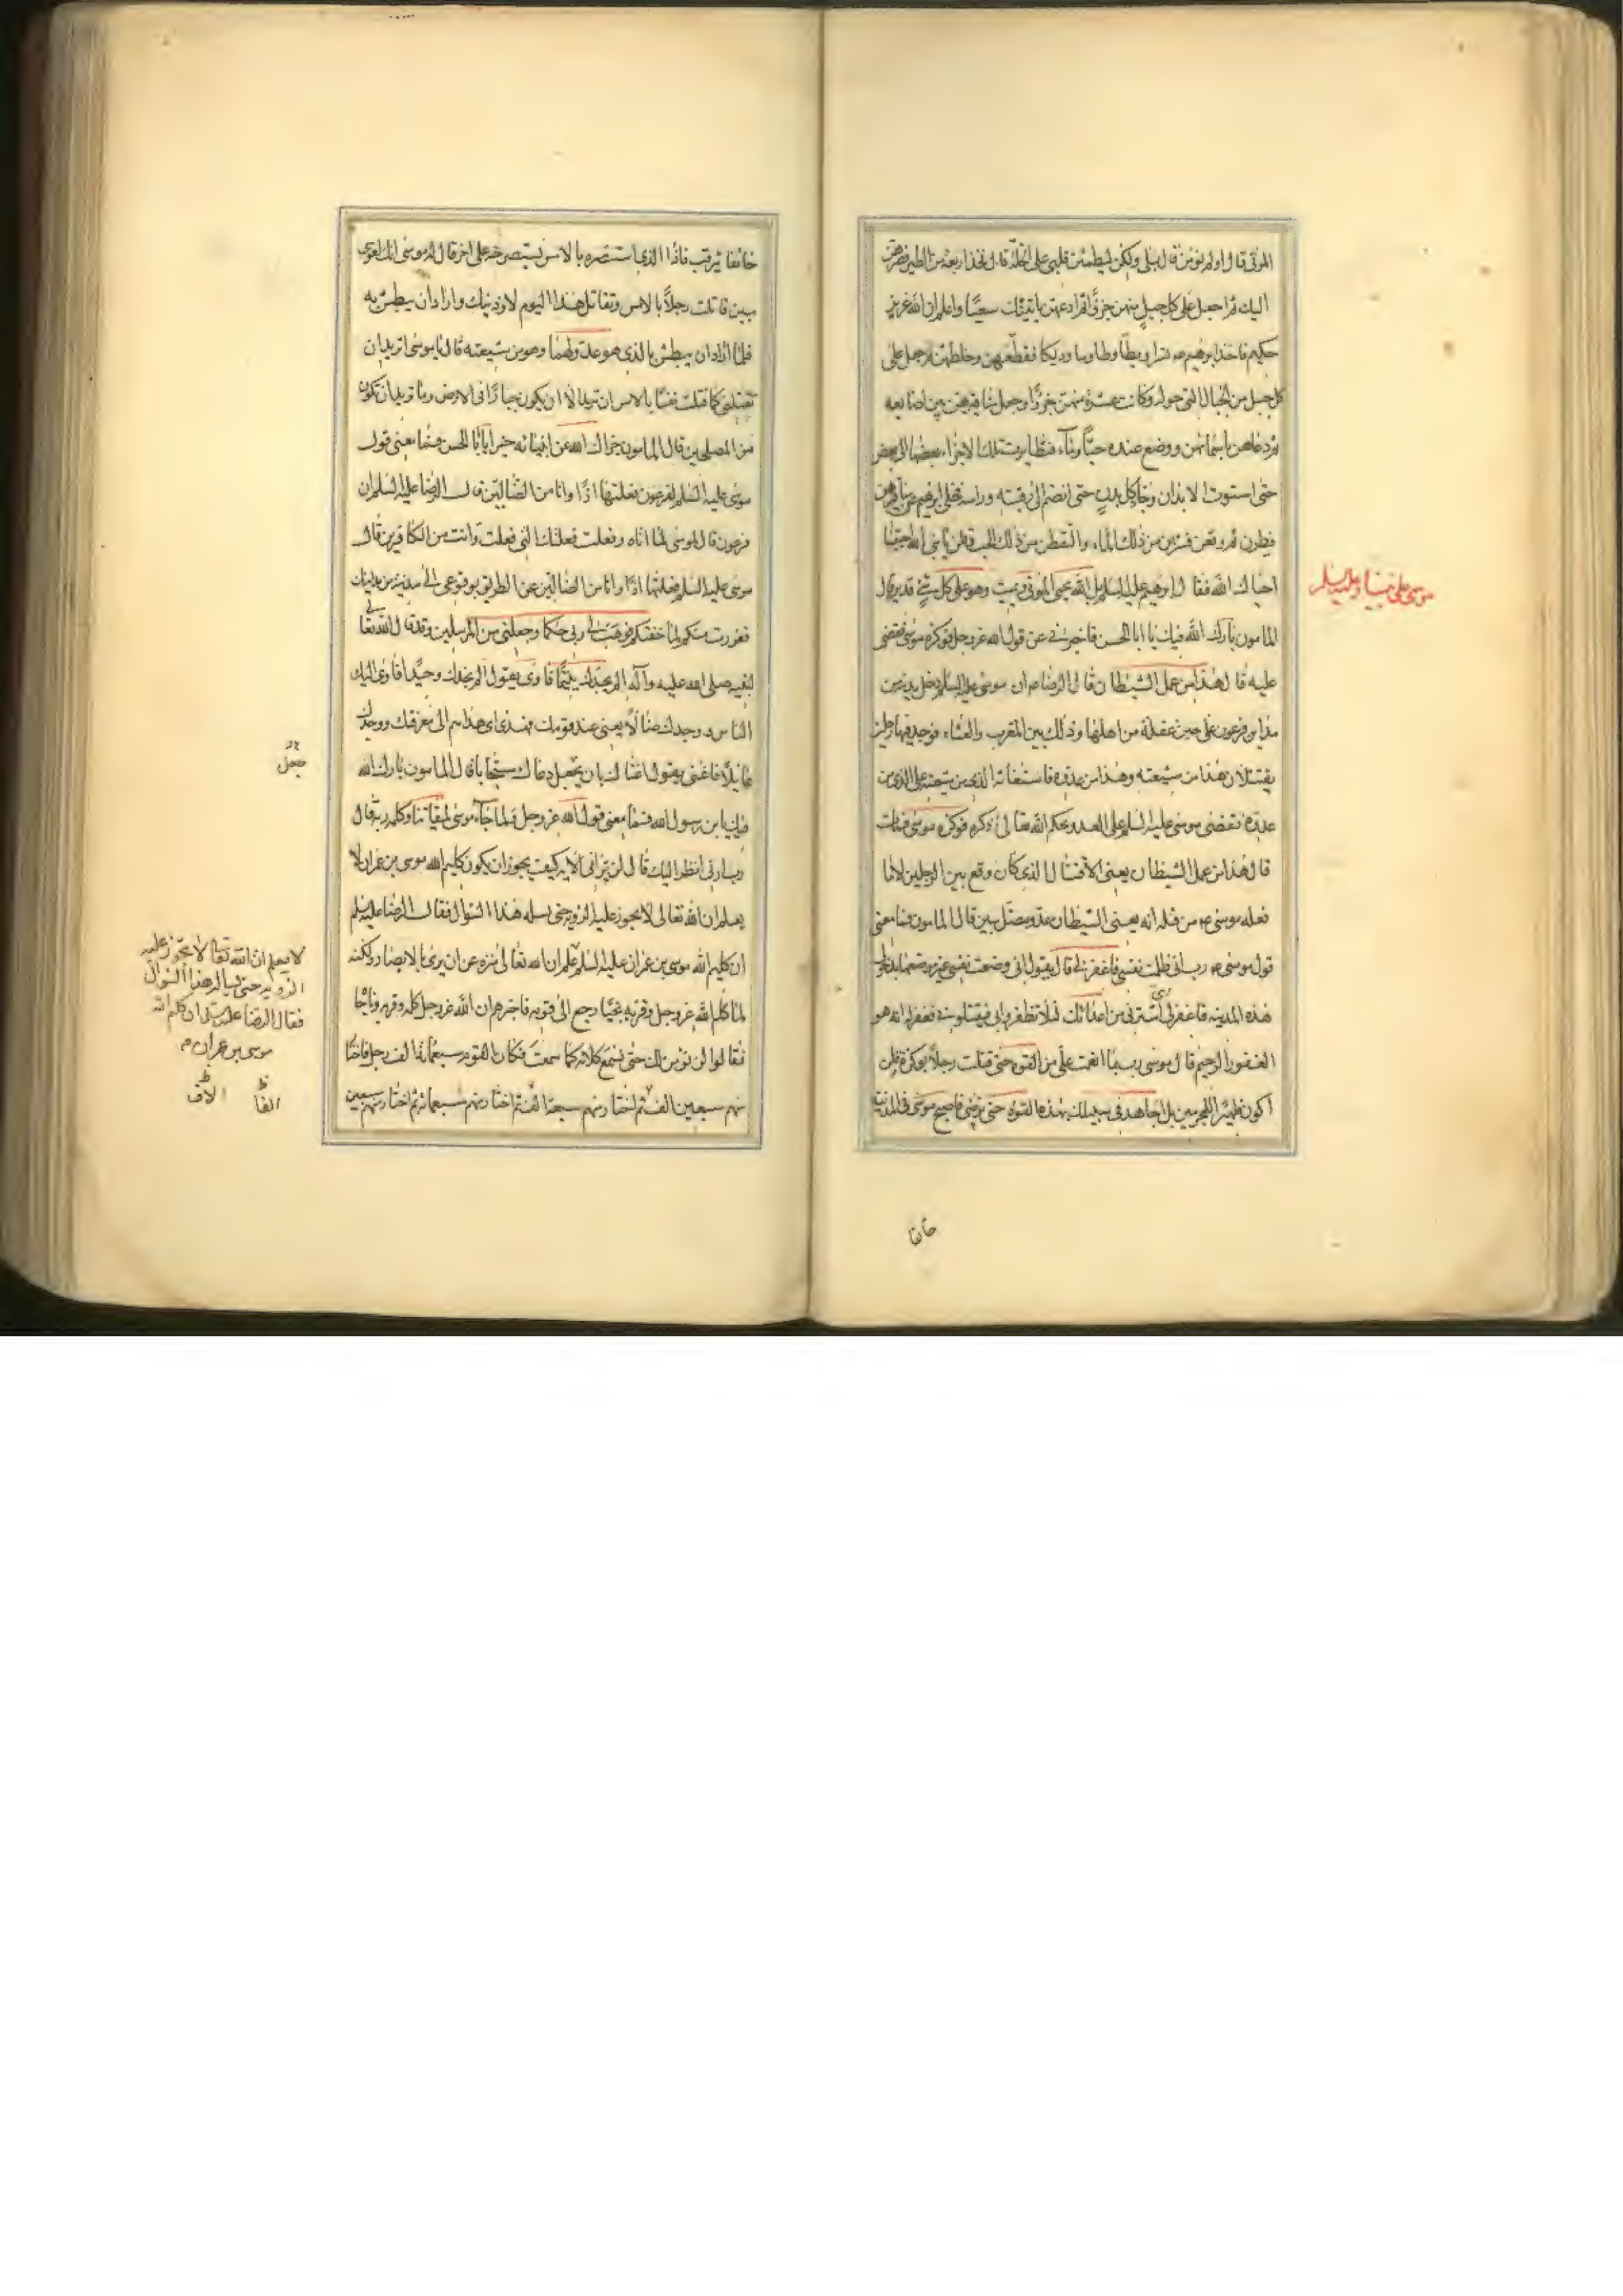 الموتى قال اولم تؤمن قال بلى ولكن ليطمئن قلبي على الخلة قال فخذ اربعة من الطير فصرهن
اليك ثم اجعل على كل جبل منهن جزءًا ثم ادعهن ياتينك سعيًا واعلم ان الله عزيز
حكيم فاخذ ابرهيم ع نسرا وبطّا وطاوسا وديكا فقطعهن وخلطهن ثم جعل على
كل جبل من الجبال التي حوله وكانت عشرة منهن جزءًا وجعل مناقيرهن بين اصابعه
ثم دعاهن باسمائهن ووضع عنده حبّا وماء فتطايرت تلك الاجزاء بعضها الى بعض
حتى استوت الابدان وجاء كل بدن حتى انضم الى رقبته وراسه فخلى ابرهيم عن مناقيرهن
فطرن ثم وقعن فشربن من ذلك الماء والتقطن من ذلك الحب وقلن يا نبي الله احييتنا
احياك الله فقال ابرهيم عليه السلم بل الله يحيى الموتى ويميت وهو على كل شئ قدير قال
المامون بارك الله فيك يا ابا الحسن فاخبرني عن قول الله عز وجل فوكزه موسى فقضى
عليه قال هذا من عمل الشيطان قال الرضا ع ان موسى عليه السلم دخل مدينة من
مداين فرعون على حين غفلة من اهلها وذلك بين المغرب والعشاء فوجد فيها رجلين
يقتتلان هذا من شيعته وهذا من عدوه فاستغاثه الذي من شيعته على الذي من
عدوه فقضى موسى عليه السلم على العدو بحكم الله تعالى ذكره فوكزه موسى فمات
قال هذا من عمل الشيطان يعنى الاقتتال الذي كان وقع بين الرجلين لا ما
فعله موسى ع من قتله انه يعنى الشيطان عدو مضل مبين قال المامون فما معنى
قول موسى ع رب انى ظلمت نفسي فاغفر لي قال يقول انى وضعت نفسي غير موضعها بدخولى
هذه المدينه فاغفر لى اى استرنى من اعدائك لئلا يظفروا بى فيقتلونى فغفر له انه هو
الغفور الرحيم قال موسى رب بما انعمت علىّ من القوه حتى قتلت رجلاً بوكزة فلن
اكون ظهيرًا للمجرمين بل اجاهد في سبيلك بهذه القوه حتى ترضى فاصبح موسى في المدينه
موسى على نبينا وعليه السلم
خائفا
خائفا يترقب فاذا الذي استنصره بالامس يستصرخه على اخر قال له موسى انك لغوى
مبين قاتلت رجلاً بالامس وتقاتل هذا اليوم لاوذينك واراد ان يبطش به
فلما اراد ان يبطش بالذى هو عدو لهما وهو من شيعته قال يا موسى اتريد ان
تقتلنى كما قتلت نفسًا بالامس ان تريد الا ان يكون جبارًا فى الارض وما تريد ان تكون
من المصلحين قال المامون جزاك الله عن انبيائه خيرًا يا ابا الحسن فما معنى قول
موسى عليه السلم لفرعون فعلتها اذًا وانا من الضالين قال الرضا عليه السلم ان
فرعون قال لموسى لما اتاه وفعلت فعلتك التى فعلت وانت من الكافرين قال
موسى عليه السلم فعلتها اذًا وانا من الضالين عن الطريق بوقوعى الى مدينة من مداينك
ففررت منكم لما خفتكم فوهب لى ربى حكما وجعلنى من المرسلين وقد قال الله تعا
لنبيه صلى الله عليه وآله الم يجدك يتيمًا فاوى يقول الم يجدك وحيدًا فاوى اليك
الناس ووجدك ضالاً يعنى عند قومك فهدى اى هداهم الى معرفتك ووجدك
عائلاً فاغنى يقول اغناك بان يجعل دعاك مستجابا قال المامون بارك الله
فيك يا ابن رسول الله فما معنى قول الله عز وجل ولما جاء موسى لميقاتنا وكلمه ربه قال
رب ارنى انظر اليك قال لن ترانى الايه كيف يجوز ان يكون كليم الله موسى بن عمران لا
يعلم ان الله تعالى لا يجوز عليه الرؤيه حتى يسله هذا السؤال فقال الرضا عليه السلم
ان كليم الله موسى بن عمران عليه السلم علم ان الله تعالى منزه عن ان يرى بالابصار ولكنه
لما كلمه الله عز وجل وقربه نجيّا رجع الى قومه فاخبرهم ان الله عز وجل كلمه وقربه وناجا
فقالوا لن نؤمن لك حتى نسمع كلامه كما سمعت وكان القوم سبعمائة الف رجل فاختا
منهم سبعين الف ثم اختار منهم سبعة الف ثم اختار منهم سبعمائة ثم اختار منهم سبعين
جعل
لا يعلم ان الله تعا لا يجوز عليه
الرؤيه حتى يساله هذا السؤال
فقال الرضا عليه السلم ان كليم الله
موسى بن عمران م
الفا الاف